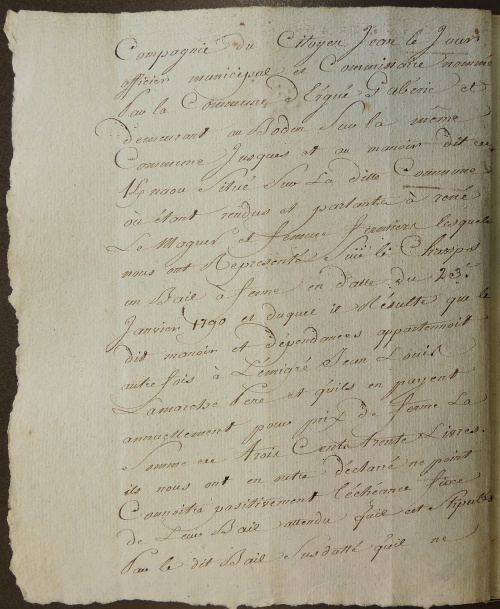 Compagnie du Citoyen Jean le Jour
officier municipal et Commissaire nommé
Par la Commune d'Ergué Gaberic et
demeurant au Boden Sur la même
Commune Jusques et au manoir dit
Situé Sur La ditte Commune
où étant rendus et parlants à rené
Le Moguer et femme fermiers lesquels
nous ont Représenté Sur le Champs
un Bail à ferme en datte du 23e
Janvier 1790 et duquel il Résulte que le
dit manoir et dépendances appartenoit
autre fois à L'émigré Jean Louis
Lamarche Pere et qu'ils en payent
annuellement pour prix de ferme La
Somme de trois Cents trente Livres.
ils nous ont en outre déclaré ne point
Connoitre positivement l'échéance fixe
de Leur Bail attendu qu'il est Stipulé
Par le dit Bail Susdatté qu'il ne